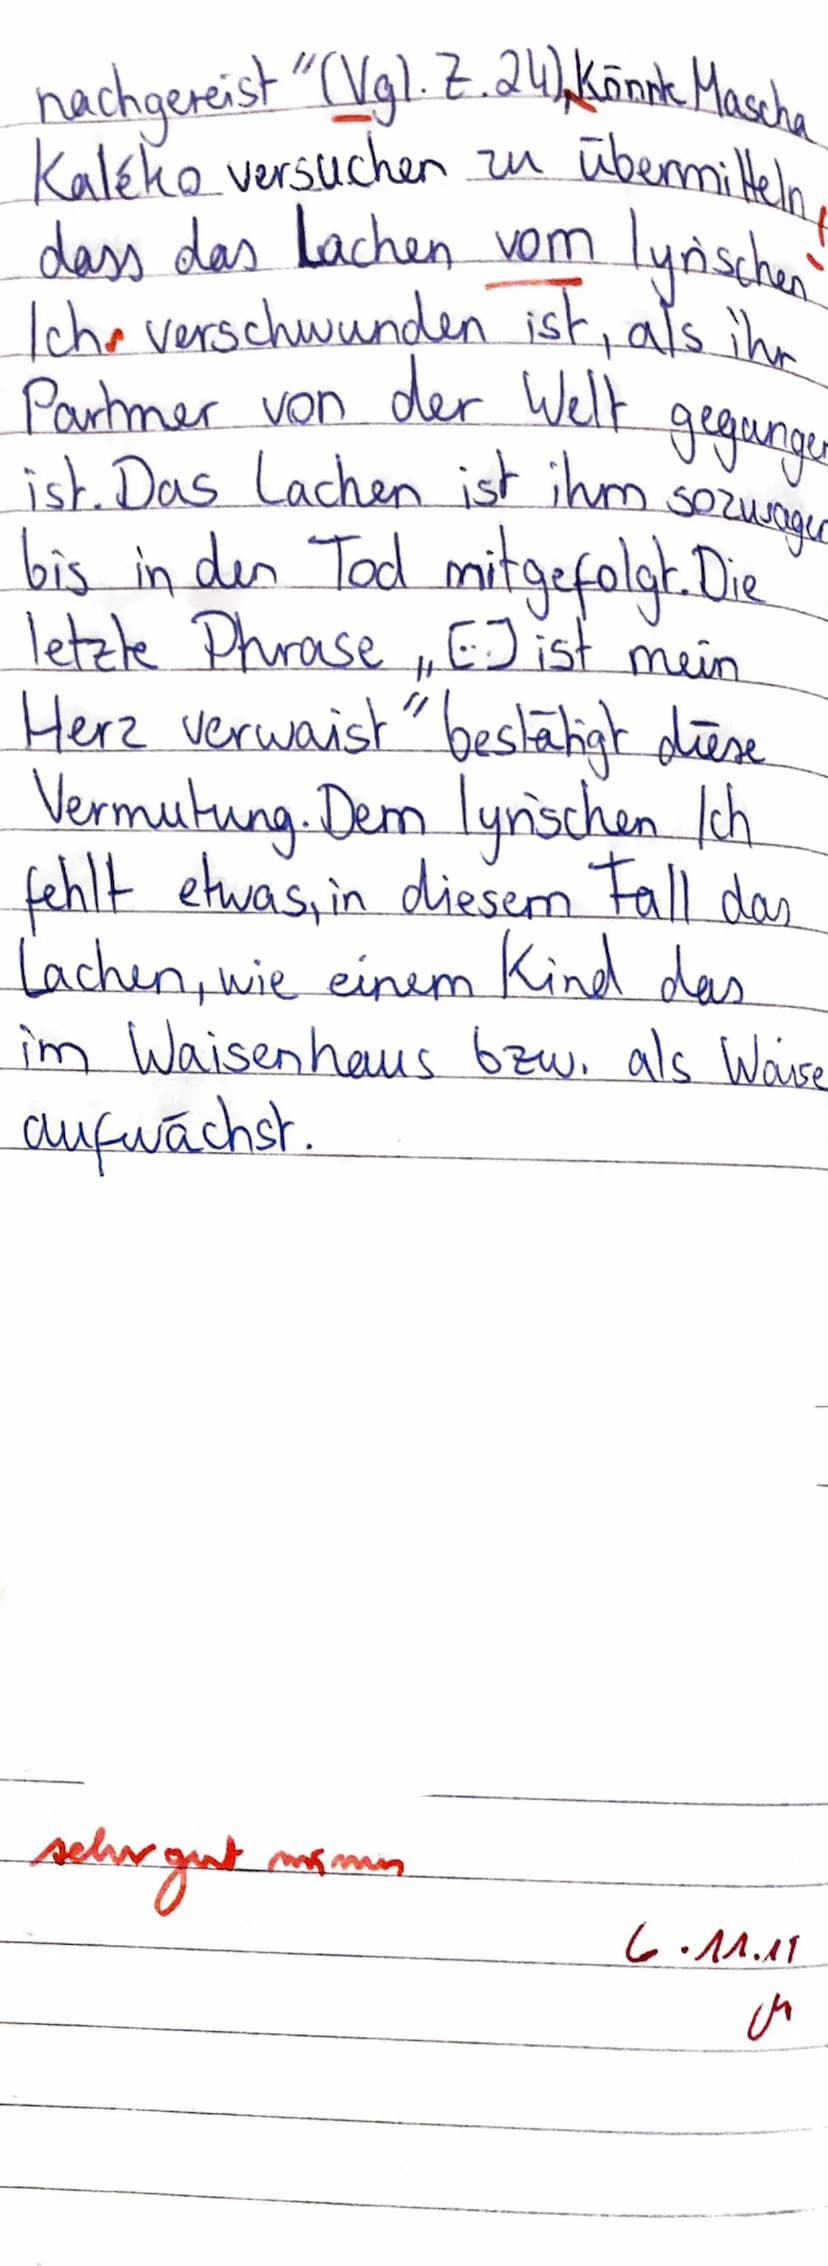 nachgereist" (Vgl. Z. 24), Könnte Mascha
Kaléko versuchen zu übermitteln,
dass das Lachen vom lyrischen
Ich verschwunden ist, als ihr
Partner von der Welt gegangen
ist. Das Lachen ist ihm sozusagen
bis in den Tod mitgefolgt. Die
letzte Phrase „[...] ist mein
Herz verwaist" bestätigt diese
Vermutung. Dem lyrischen Ich
fehlt etwas, in diesem Fall das
Lachen, wie einem Kind das
im Waisenhaus bzw. als Waise
aufwächst.
sehr gut
6.11.